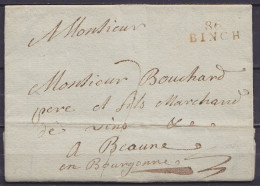 Monsieur
86
BINCH
Monsieur Bouchard
pere et fils Marchand
de vins &
a Beaune
en Bourgonne